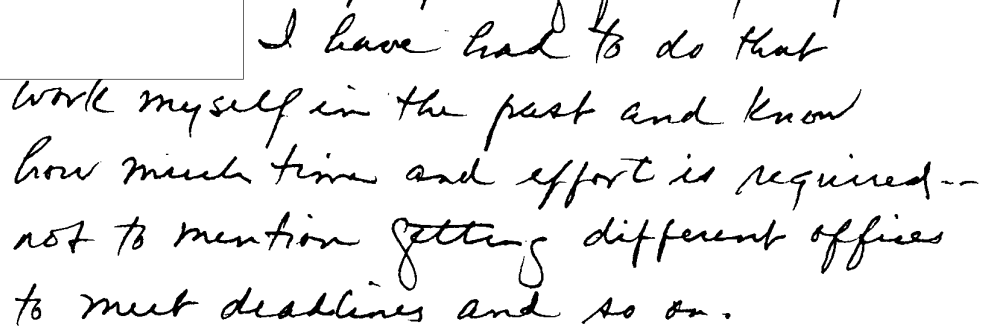 I have had to do that
work myself in the past and know
how much time and effort is required--
not to mention getting different offices
to meet deadlines and so on.